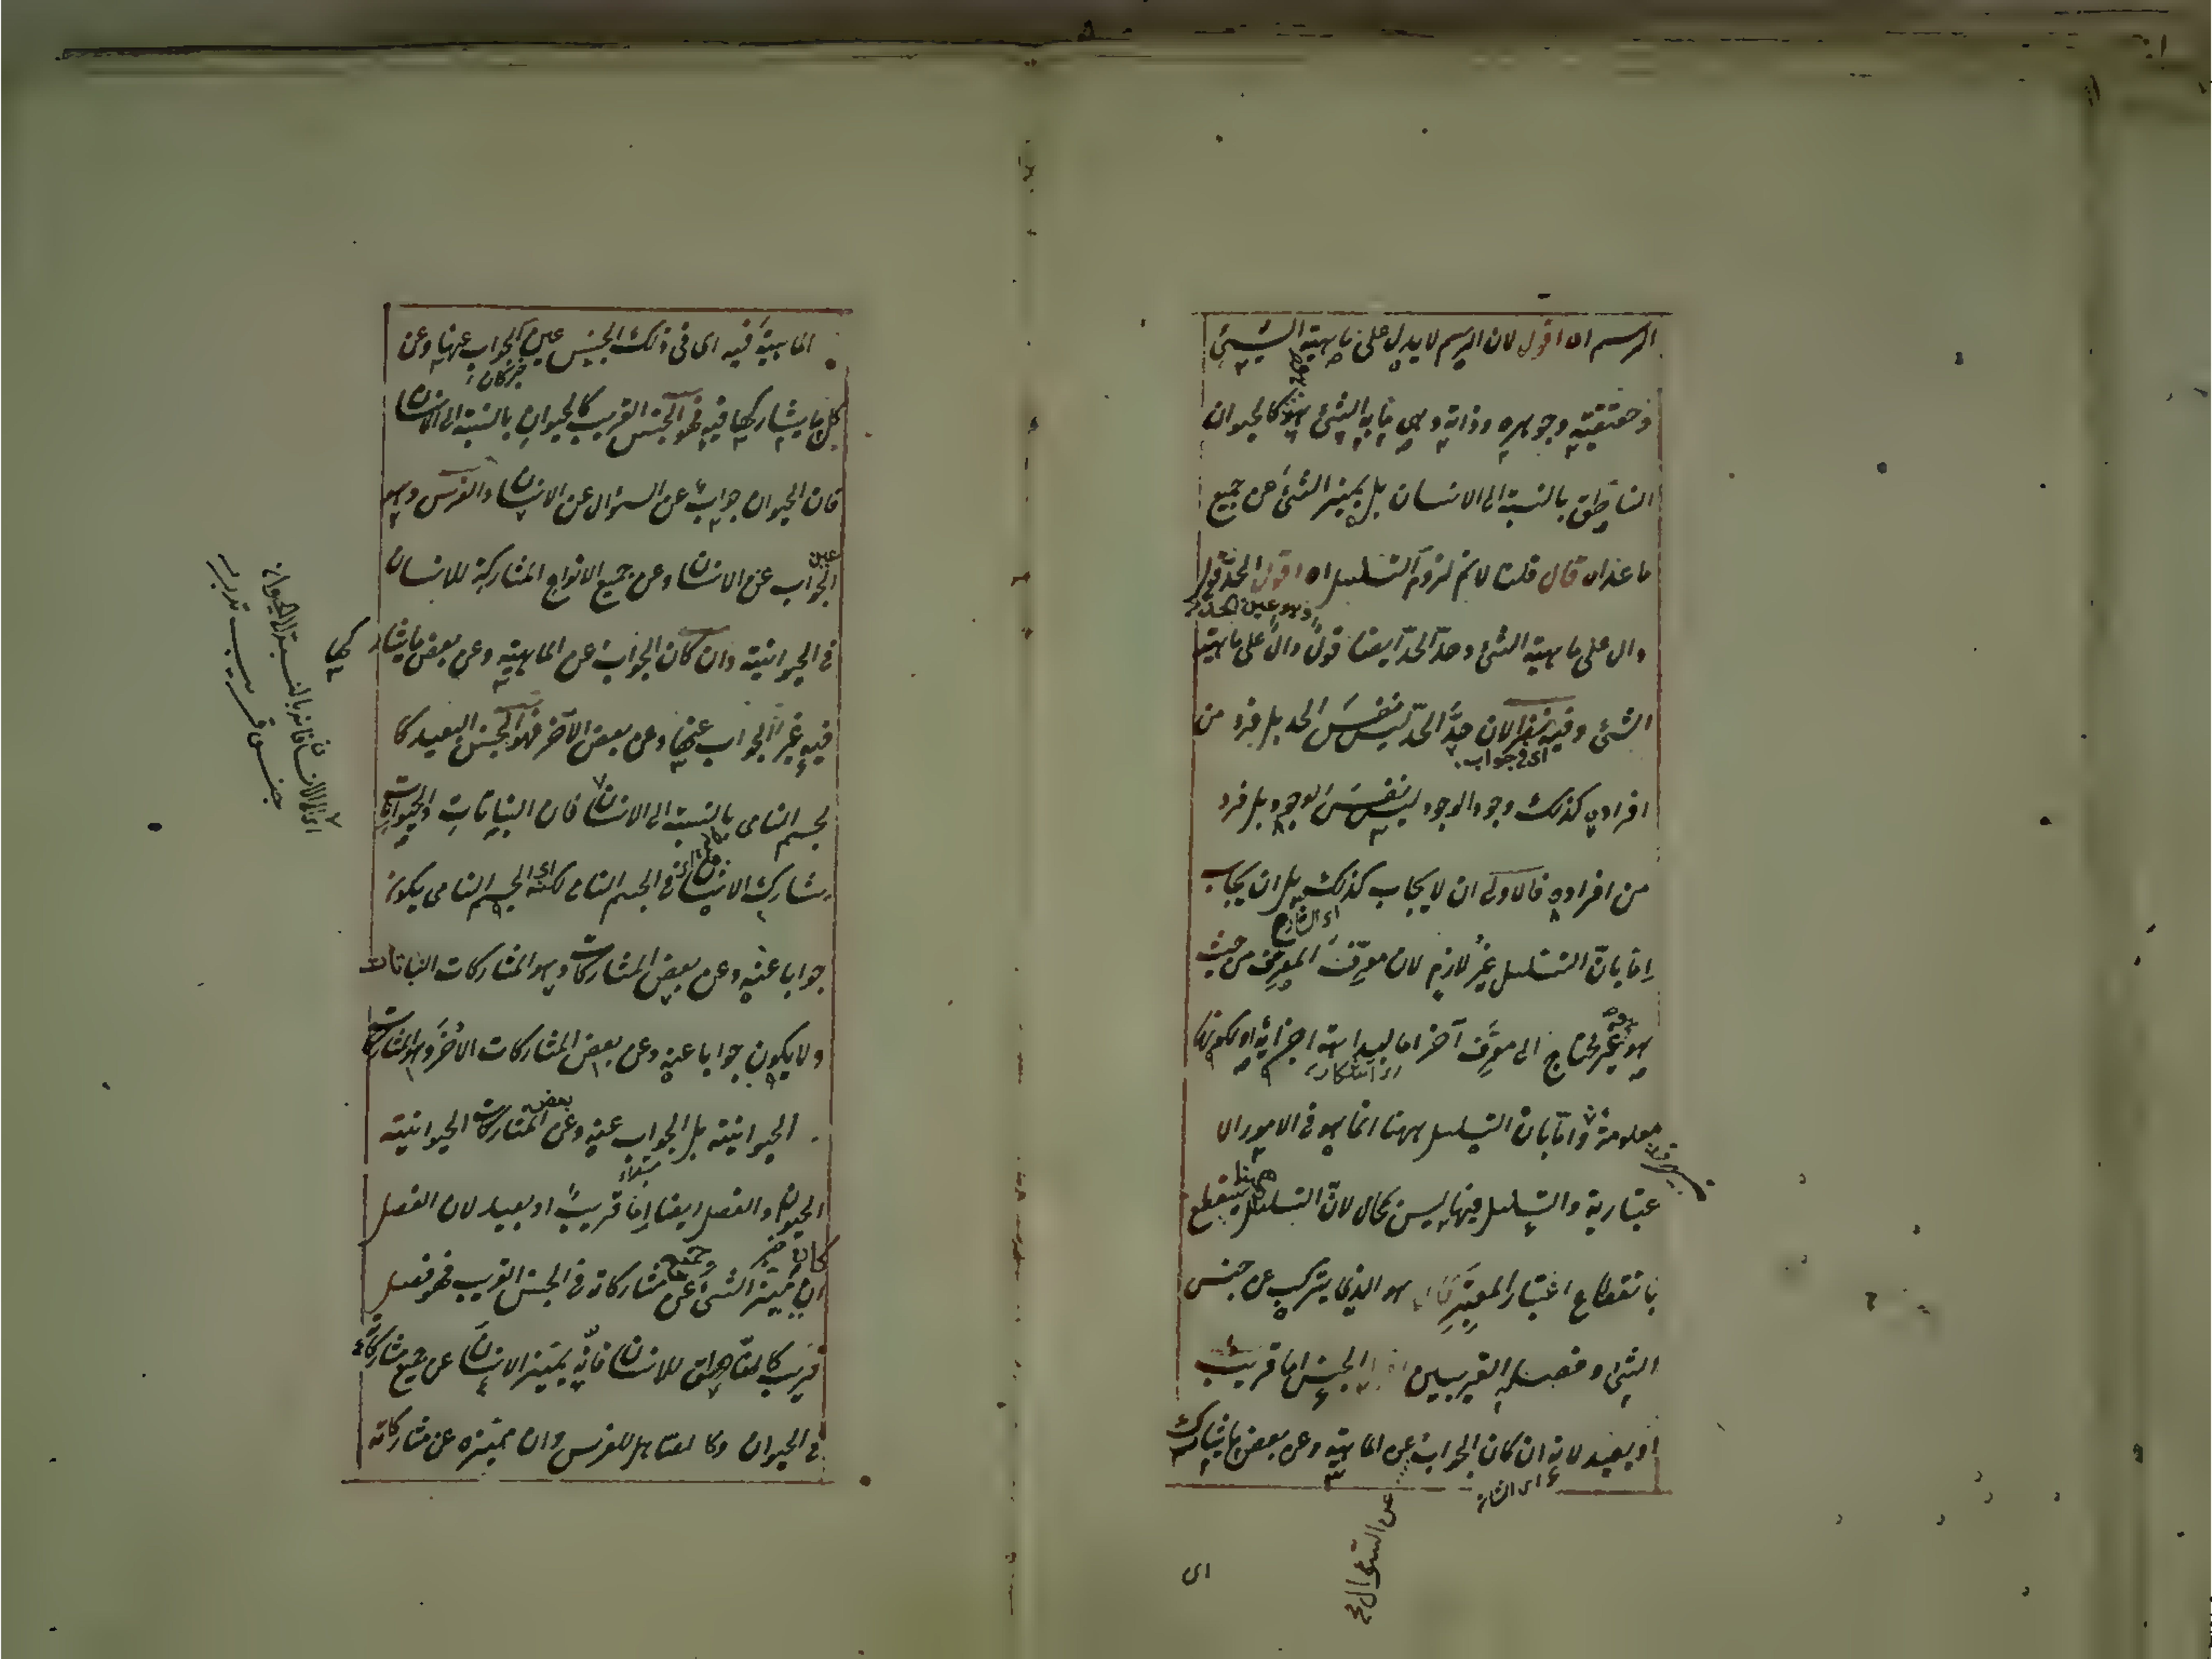 الرسم اه اقول لان الرسم لا يدل على ماهية الشيئ
وحقيقته وجوهره وذاته وهى ما به الشئ هو كالحيوان
الناطق بالنسبة الى الانسان بل يميز الشئ عن جميع
ما عداه قال قلنا لا نم لزوم التسلسل اه اقول الحد قول
وهو عين الحد
دال على ماهية الشئ وحدّ الحدّ ايضا قول دال على ماهية
الشئ وفيه نظر لان حدّ الحدّ ليس نفس الحد بل فرد من
اى فى جواب
افراده كذلك وجود الوجود ليس نفس الوجود بل فرد
من افراده فالاولى ان لا يجاب كذلك بل ان يجاب
اى الشارح
اما بانّ التسلسل غير لازم لان معرّف المعرف من حيث
هو غير محتاج الى معرف آخر اما لبداهة اجزائه او لكونها
معلومة واما بان التسلسل ههنا انما هو فى الامور الا
عتبارية والتسلسل فيها ليس بمحال لانّ التسلسل ينقطع
ههنا
بانقطاع اعتبار المعتبر قال هو الذى يتركب عن جنس
الشئ وفصله القريبين الجنس اما قريب
او بعيد لانه ان كان الجواب عن الماهية وعن بعض ما يشارك
عن السؤال
اى
الماهية فيه اى فى ذلك الجنس عين الجواب عنها وعن
خبر كان
كل ما يشاركها فيه فهو الجنس القريب كالحيوان بالنسبة الى الانسان
فان الحيوان جواب عن السؤال عن الانسان والفرس وهو
عين
الجواب عن الانسان وعن جميع الانواع المشاركة للانسان
فى الحيوانية وان كان الجواب عن الماهية وعن بعض ما يشاركها
فيه غير الجواب عنها وعن بعض الآخر فهو الجنس البعيد كا
لجسم النامى بالنسبة الى الانسان فان النباتات والحيوانات
يشارك الانسان فى الجسم النامى لكنه الجسم النامى يكون
جوابا عنه وعن بعض المشاركات وهو المشاركات النباتات
ولا يكون جوابا عنه وعن بعض المشاركات الاخر وهو المشاركات
الحيوانية بل الجواب عنه وعن بعض المشاركات الحيوانية
الحيوان والفصل ايضا اما قريب او بعيد لان الفصل
ان ميز الشئ عن جميع مشاركاته فى الجنس القريب فهو فصل
قريب كالناطق للانسان فانه يميز الانسان عن جميع مشاركاته
فى الحيوان وكالصاهل للفرس وان ميزه عن مشاركاته
اى الى الانسان فانه بالنسبة الى الحيوان
جنس قريب تدبر